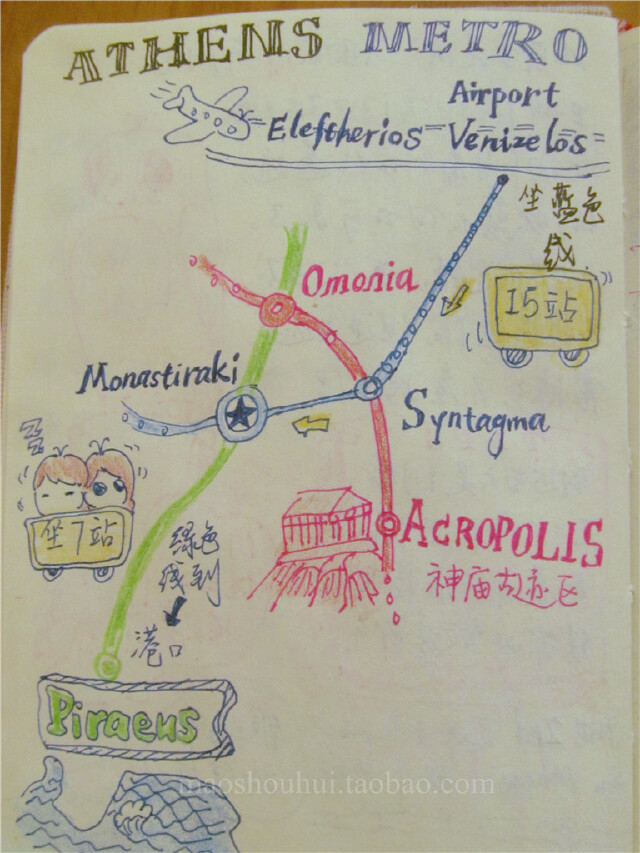 ATHENS METRO
Airport
Eleftherios Venizelos
坐蓝色
线
15站
Omonia
Monastiraki
Syntagma
坐7站
绿色
线到
港口
ACROPOLIS
神庙古迹区
Piraeus
maoshouhui.taobao.com